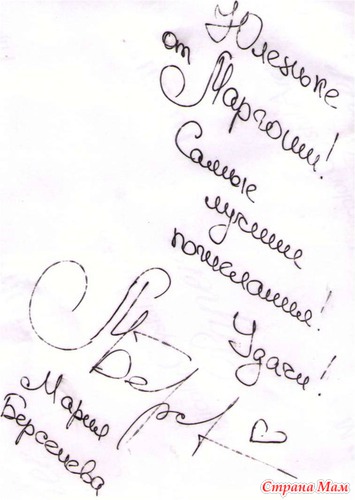 Юленьке
от Маргоши!
Самые
лучшие
пожелания!
Удачи!
М. Берс
Мария
Берсенева
Страна Мам